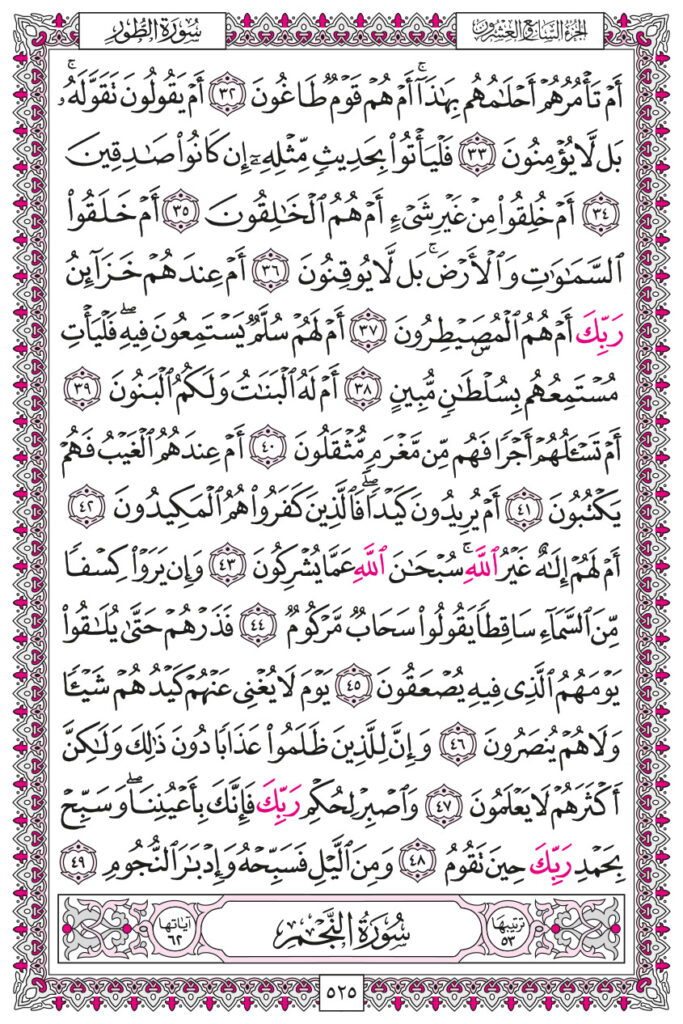 الجزء السابع والعشرون
سورة الطور
أَمْ تَأْمُرُهُمْ أَحْلَٰمُهُم بِهَٰذَآ ۚ أَمْ هُمْ قَوْمٌ طَاغُونَ ٣٢ أَمْ يَقُولُونَ تَقَوَّلَهُۥ ۚ
بَل لَّا يُؤْمِنُونَ ٣٣ فَلْيَأْتُوا۟ بِحَدِيثٍ مِّثْلِهِۦٓ إِن كَانُوا۟ صَٰدِقِينَ
٣٤ أَمْ خُلِقُوا۟ مِنْ غَيْرِ شَىْءٍ أَمْ هُمُ ٱلْخَٰلِقُونَ ٣٥ أَمْ خَلَقُوا۟
ٱلسَّمَٰوَٰتِ وَٱلْأَرْضَ ۚ بَل لَّا يُوقِنُونَ ٣٦ أَمْ عِندَهُمْ خَزَآئِنُ
رَبِّكَ أَمْ هُمُ ٱلْمُصَۣيْطِرُونَ ٣٧ أَمْ لَهُمْ سُلَّمٌ يَسْتَمِعُونَ فِيهِ ۖ فَلْيَأْتِ
مُسْتَمِعُهُم بِسُلْطَٰنٍ مُّبِينٍ ٣٨ أَمْ لَهُ ٱلْبَنَٰتُ وَلَكُمُ ٱلْبَنُونَ ٣٩
أَمْ تَسْـَٔلُهُمْ أَجْرًا فَهُم مِّن مَّغْرَمٍ مُّثْقَلُونَ ٤٠ أَمْ عِندَهُمُ ٱلْغَيْبُ فَهُمْ
يَكْتُبُونَ ٤١ أَمْ يُرِيدُونَ كَيْدًا ۖ فَٱلَّذِينَ كَفَرُوا۟ هُمُ ٱلْمَكِيدُونَ ٤٢
أَمْ لَهُمْ إِلَٰهٌ غَيْرُ ٱللَّهِ ۚ سُبْحَٰنَ ٱللَّهِ عَمَّا يُشْرِكُونَ ٤٣ وَإِن يَرَوْا۟ كِسْفًا
مِّنَ ٱلسَّمَآءِ سَاقِطًا يَقُولُوا۟ سَحَابٌ مَّرْكُومٌ ٤٤ فَذَرْهُمْ حَتَّىٰ يُلَٰقُوا۟
يَوْمَهُمُ ٱلَّذِى فِيهِ يُصْعَقُونَ ٤٥ يَوْمَ لَا يُغْنِى عَنْهُمْ كَيْدُهُمْ شَيْـًٔا
وَلَا هُمْ يُنصَرُونَ ٤٦ وَإِنَّ لِلَّذِينَ ظَلَمُوا۟ عَذَابًا دُونَ ذَٰلِكَ وَلَٰكِنَّ
أَكْثَرَهُمْ لَا يَعْلَمُونَ ٤٧ وَٱصْبِرْ لِحُكْمِ رَبِّكَ فَإِنَّكَ بِأَعْيُنِنَا ۖ وَسَبِّحْ
بِحَمْدِ رَبِّكَ حِينَ تَقُومُ ٤٨ وَمِنَ ٱلَّيْلِ فَسَبِّحْهُ وَإِدْبَٰرَ ٱلنُّجُومِ ٤٩
ترتيبها ٥٣ سُورَةُ النَّجْمِ آياتها ٦٢
٥٢٥